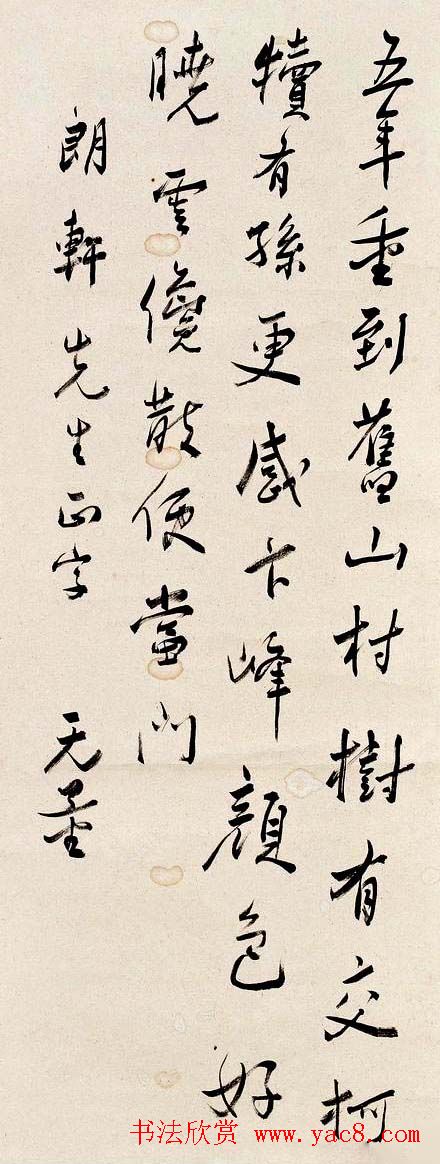 五年重到舊山村樹有交柯
犢有孫更感卞峰顏色好
曉雲儳散便當門
朗軒先生正字 无量
书法欣赏 www.yac8.com